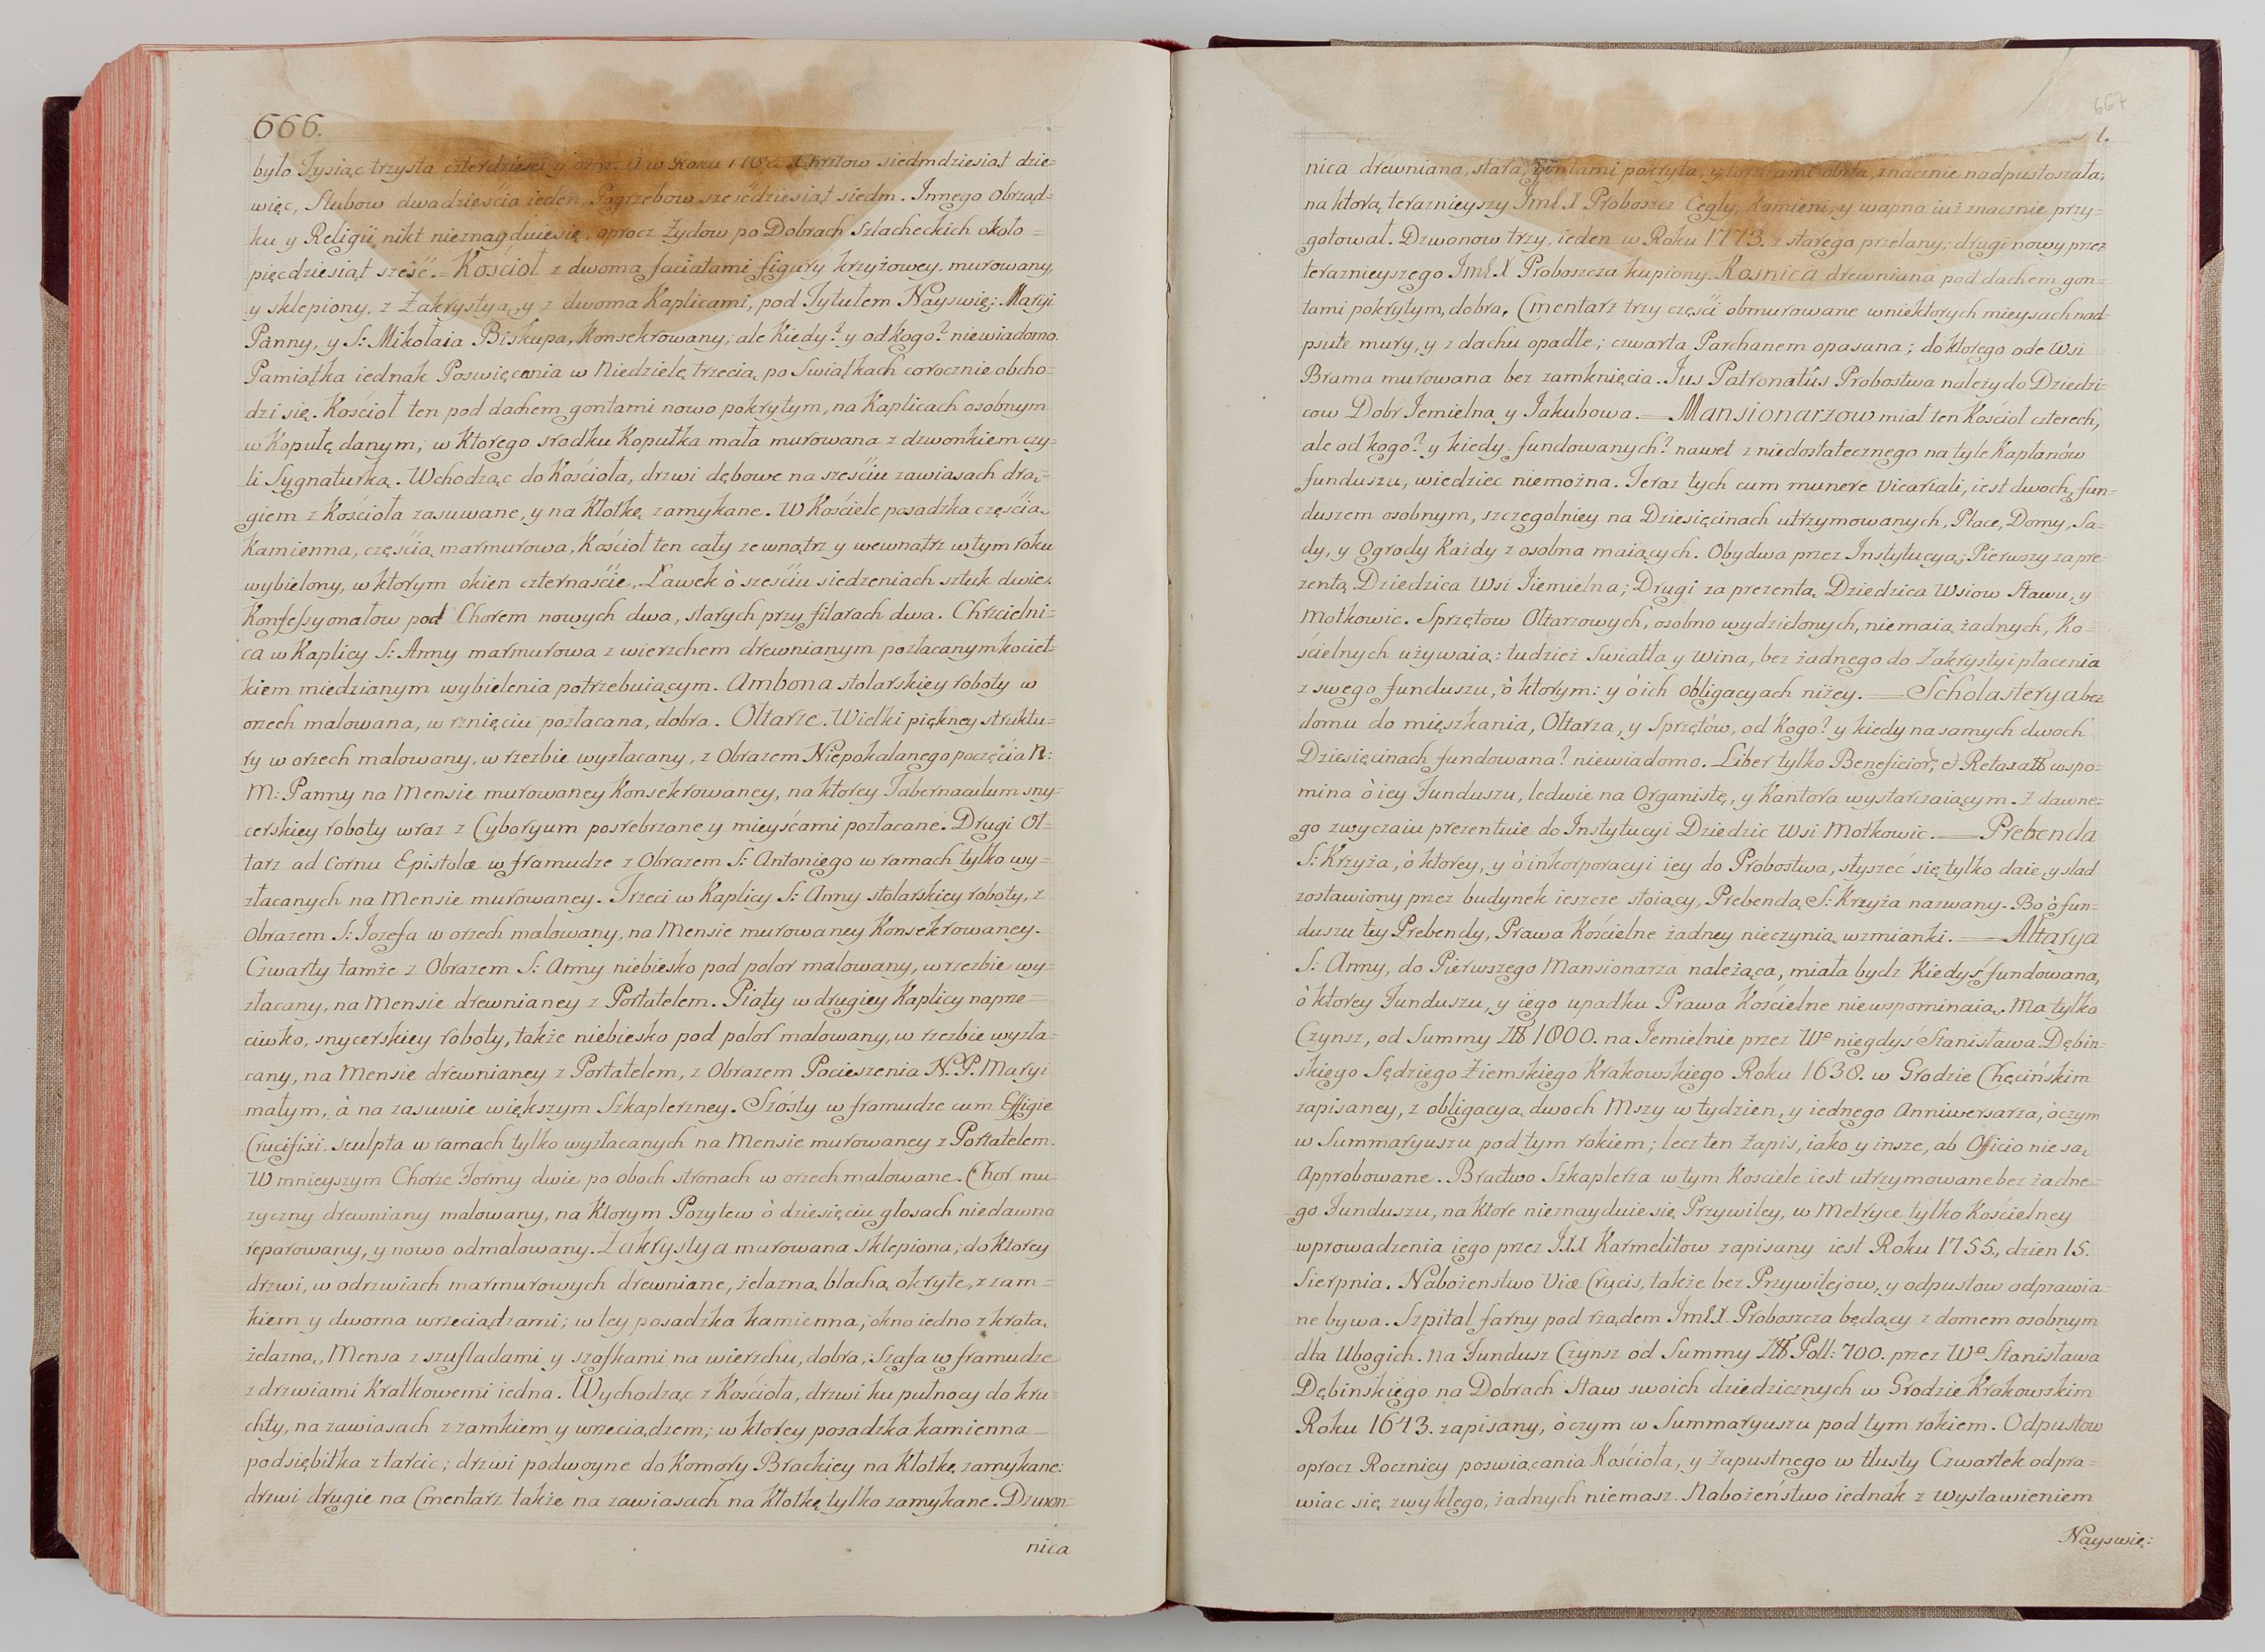 666.
było Tysiąc trzysta czterdzieści y ośm. A w Roku Chrztow siedmdziesiąt dzie=
więc, Slubow dwadzieścia ieden, Pogrzebow sześćdziesiąt siedm. Innego Obrząd=
ku y Religii nikt nieznayduiesię, oprocz Żydow po Dobrach Szlacheckich około =
pięcdziesiąt sześć. = Kościoł z dwoma faciatami figury krzyżowey, murowany,
y sklepiony, z Zakrystyą, y z dwoma Kaplicami, pod Tytułem Nayswię: Maryi
Panny, y S: Mikołaia Biskupa, Konsekrowany; ale Kiedy? y od kogo? niewiadomo.
Pamiątka iednak Poswięcenia w Niedzielę trzecią po Swiątkach corocznie obcho=
dzi się. Kościoł ten pod dachem gontami nowo pokrytym, na Kaplicach osobnym
w Kopułę danym; w Ktorego srodku Kopułka mała murowana z dzwonkiem czy=
li Sygnaturką. Wchodząc do Kościoła, drzwi dębowe na sześciu zawiasach drą=
giem z Kościoła zasuwane, y na Kłotkę zamykane. W Kościele posadzka częścią
Kamienna, częścią marmurowa, Kościoł ten cały zewnątrz y wewnątrz w tym roku
wybielony, w ktorym okien czternaście, Ławek ò sześciu siedzeniach sztuk dwie.
Konfessyonałow pod Chorem nowych dwa, starych przy filarach dwa. Chrzcielni=
ca w Kaplicy S: Anny marmurowa z wierzchem drewnianym pozłacanym kocieł=
kiem miedzianym wybielenia potrzebuiącym. Ambona stolarskiey roboty w
orzech malowana, w rznięciu pozłacana, dobra. Ołtarze. Wielki piękney struktu=
ry w orzech malowany, w rzezbie wyzłacany, z Obrazem Niepokalanego poczęcia N:
M: Panny na Mensie murowaney Konsekrowaney, na ktorey Tabernaculum sny=
cerskiey roboty wraz z Cyboryum posrebrzane y mieyścami pozłacane. Drugi Oł=
tarz ad Cornu Epistolæ w framudze z Obrazem S: Antoniego w ramach tylko wy=
złacanych na Mensie murowaney. Trzeci w Kaplicy S: Anny stolarskiey roboty, z
Obrazem S: Jozefa w orzech malowany, na Mensie murowaney Konsekrowaney.
Czwarty tamże z Obrazem S: Anny niebiesko pod polor malowany, w rzezbie wy=
złacany, na Mensie drewnianey z Portatelem. Piąty w drugiey Kaplicy naprze=
ciwko, snycerskiey roboty, także niebiesko pod polor malowany, w rzezbie wyzła=
cany, na Mensie drewnianey z Portatelem, z Obrazem Pocieszenia N. P. Maryi
małym, à na zasuwie większym Szkaplerzney. Szósty w framudze cum Effigie
Crucifixi sculpta w ramach tylko wyzłacanych na Mensie murowaney z Portatelem.
W mnieyszym Chorze Formy dwie po oboch stronach w orzech malowane. Chor mu=
zyczny drewniany malowany, na Ktorym Pozytew ò dziesięciu głosach niedawno
reparowany, y nowo odmalowany. Zakrystya murowana sklepiona; do ktorey
drzwi, w odrzwiach marmurowych drewniane, żelazną blachą okryte, z zam=
kiem y dwoma wrzeciądzami; w tey posadzka kamienna; okno iedno z kratą
żelazną, Mensa z szufladami y szafkami na wierzchu, dobra, Szafa w framudze
z drzwiami Kratkowemi iedna. Wychodząc z Kościoła, drzwi ku pułnocy do kru=
chty, na zawiasach z zamkiem y wrzeciądzem; w ktorey posadzka kamienna
podsiębitka z tarcic; drzwi podwoyne do Komory Brackiey na Kłotkę zamykane:
drzwi drugie na Cmentarz także na zawiasach na Kłotkę tylko zamykane. Dzwon=
nica
667
1.
nica drewniana, stara, gontami pokryta, y tarcicami obita, znacznie nadpustoszała;
na ktorą teraznieyszy JmłX Proboszcz Cegły, Kamieni, y wapna iuż znacznie przy=
gotował. Dzwonow trzy, ieden w Roku 1773. z starego przelany; drugi nowy przez
teraznieyszego JmłX Proboszcza kupiony. Kosnica drewniana pod dachem gon=
tami pokrytym, dobra, Cmentarz trzy części obmurowane w niektorych mieysach nad=
psute mury, y z dachu opadłe; czwarta Parchanem opasana; do ktorego ode Wsi
Brama murowana bez zamknięcia. Jus Patronatûs Probostwa należy do Dziedzi=
cow Dobr Jemielna y Jakubowa. — Mansionarzow miał ten Kościoł czterech,
ale od kogo? y kiedy fundowanych? nawet z niedostatecznego na tyle Kapłanów
funduszu, wiedziec niemożna. Teraz tych cum munere Vicariali, iest dwoch, fun=
duszem osobnym, szczegolniey na Dziesięcinach utrzymowanych, Place, Domy, Sa=
dy, y Ogrody Każdy z osobna maiących. Obydwa przez Instytucyą; Pierwszy za pre=
zentą Dziedzica Wsi Jiemielna; Drugi za prezentą Dziedzica Wsiow Stawu, y
Motkowic. Sprzętow Ołtarzowych, osobno wydzielonych, niemaią żadnych, Ko=
ścielnych używaią: tudzież swiatła y wina, bez żadnego do Zakrystyi płacenia
z swego funduszu, ò ktorym: y ò ich obligacyach niżey. — Scholasterya bez
domu do mięszkania, Ołtarza, y Sprzętów, od Kogo? y kiedy na samych dwoch
Dziesięcinach fundowana? niewiadomo. Liber tylko Beneficior, et Retaxatt wspo=
mina ò iey Funduszu, ledwie na Organistę, y Kantora wystarczaiącym. Z dawne=
go zwyczaiu prezentuie do Instytucyi Dziedzic Wsi Motkowic. — Prebenda
S: Krzyża, ò ktorey, y ò inkorporacyi iey do Probostwa, słyszeć się tylko daie, y slad
zostawiony przez budynek ieszcze stoiący, Prebendą S: Krzyża nazwany. Bo ò fun=
duszu tey Prebendy, Prawa Kościelne żadney nieczynią wzmianki. — Altarya
S: Anny, do Pierwszego Mansionarza należąca, miała bydz Kiedyś fundowana,
ò ktorey Funduszu, y iego upadku Prawa Kościelne niewspominaią. Ma tylko
Czynsz, od Summy 1000. na Jemielnie przez Wo niegdyś Stanisława Dębin=
skiego Sędziego Ziemskiego Krakowskiego Roku 1638. w Grodzie Chęcińskim
zapisaney, z obligacyą dwoch Mszy w tydzien, y iednego Anniwersarza, ò czym
w Summaryuszu pod tym rokiem; lecz ten Zapis, iako y insze, ab Officio nie są
Approbowane. Bractwo Szkaplerza w tym Kosciele iest utrzymowane bez żadne=
go Funduszu, na ktore nieznayduie się Przywiley, w Metryce tylko Kościelney
wprowadzenia iego przez JXX Karmelitow zapisany iest Roku 1755., dzien 15.
Sierpnia. Nabożenstwo Viæ Crucis, także bez Przywilejow, y odpustow odprawia=
ne bywa. Szpital farny pod rządem JmłX Proboszcza będący z domem osobnym
dla Ubogich. Na Fundusz Czynsz od Summy Poll: 700. przez Wo Stanisława
Dębinskiego na Dobrach Staw swoich dziedzicznych w Grodzie Krakowskim
Roku 1643. zapisany, ò czym w Summaryuszu pod tym rokiem. Odpustow
oprocz Rocznicy poswiącania Kościoła, y Zapustnego w tłusty Czwartek odpra=
wiac się zwykłego, żadnych niemasz. Nabożeństwo iednak z Wystawieniem
Nayswię: